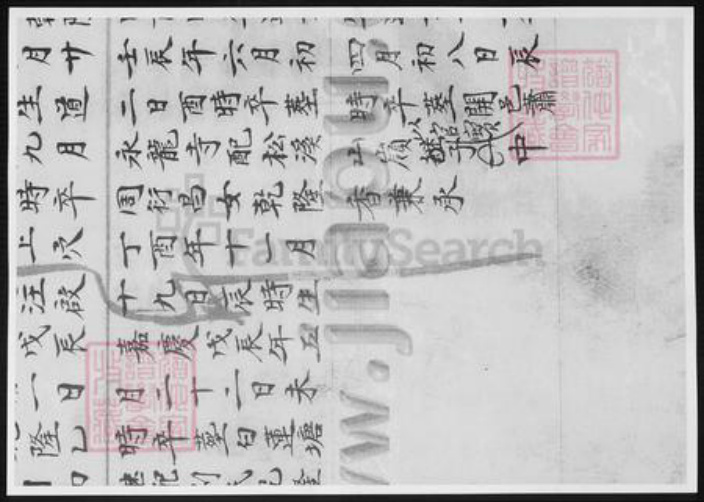 月廿
生道
九月
時卒
上穴
注啟
戊辰
一日
隆乙
壬辰年六月初
二日酉時卒墓
永龍寺配松溪
周衍昌女乾隆
丁酉年十一月
十九日辰時生
嘉慶戊辰年五
月二十二日未
時卒墓白蓮塘
四月初八日辰
時卒墓開邑蕭
嶺中
香兼承
FamilySearch